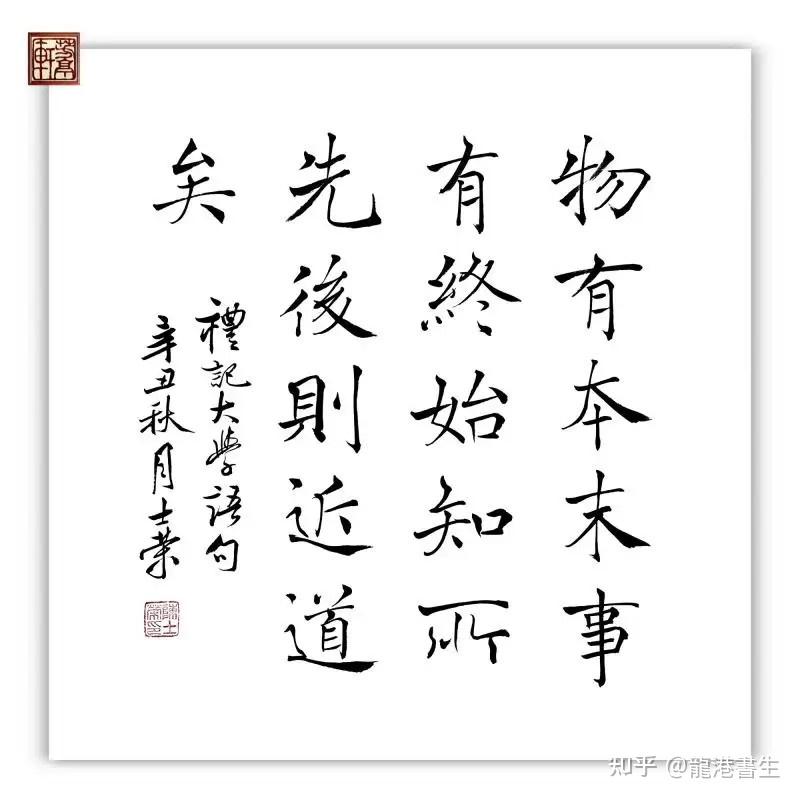 物有本末事
有終始知所
先後則近道
矣
禮記大學語句
辛丑秋月士榮
知乎 @龍港書生